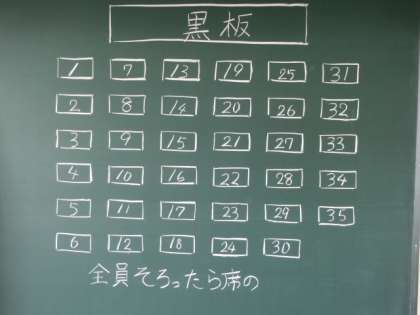 黒板
1 7 13 19 25 31
2 8 14 20 26 32
3 9 15 21 27 33
4 10 16 22 28 34
5 11 17 23 29 35
6 12 18 24 30
全員そろったら席の